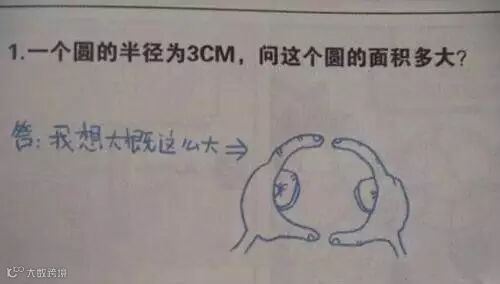 1.一个圆的半径为3CM，问这个圆的面积多大?
答:我想大概这么大⇒
大数跨境